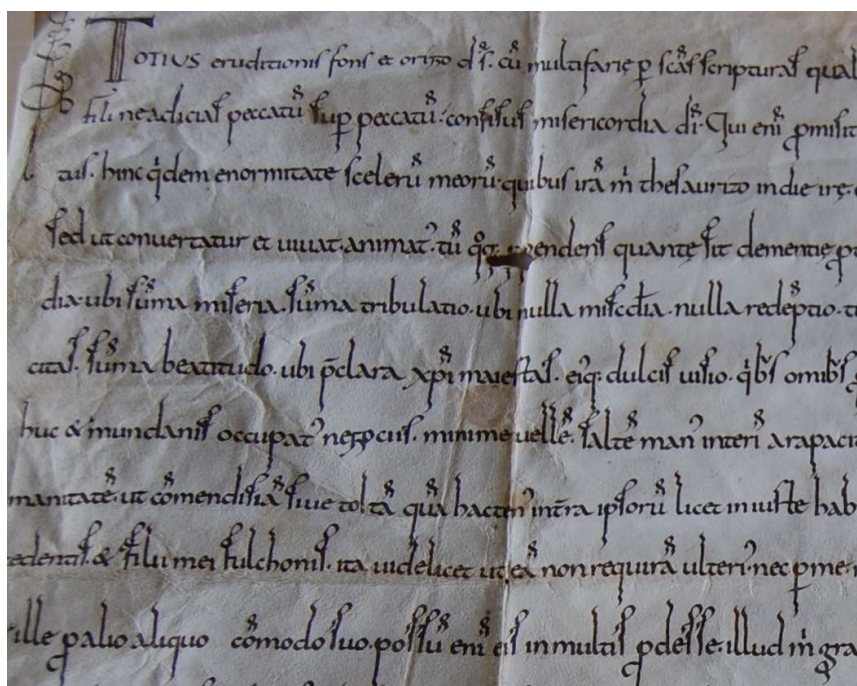 TOTIUS eruditionis fons et origo d̅s. cū multifarię p̱ scās scripturas qual
fili ne adicias peccatū sup̱ peccatū. confisus misericordia d̅i. Qui enī ꝓmisit
tus. hinc qⁱdem enormitate scelerū meorū. quibus irā m̅ thesaurizo in die irę.
sed ut convertatur et vivat. animatꝰ. tū qͦq; endens quantę sit clementię ꝓ
dia. ubi sūma miseria. sūma tribulatio. ubi nulla misc̅dia. nulla redēptio.
citas. sūma beatitudo. ubi p̄clara xp̅i maiestas. eiꝰq; dulcis visio. qⁱbꝰs omībꝰs
huc & mundanis occupatꝰ negociis. minime vellē. saltē manꝰ interī a rapaci
manitatē. ut cōmendisiā sive toltā quā hactenꝰ intra ipsorū licet iniuste hab
edentis. & filii mei fulchonis. ita videlicet ut eā non requirā ulteriꝰ. nec p̱ me.
ille ꝓ alio aliquo cōmodo suo. possū enī eis in multis ꝓdesse. illud m̅ gra